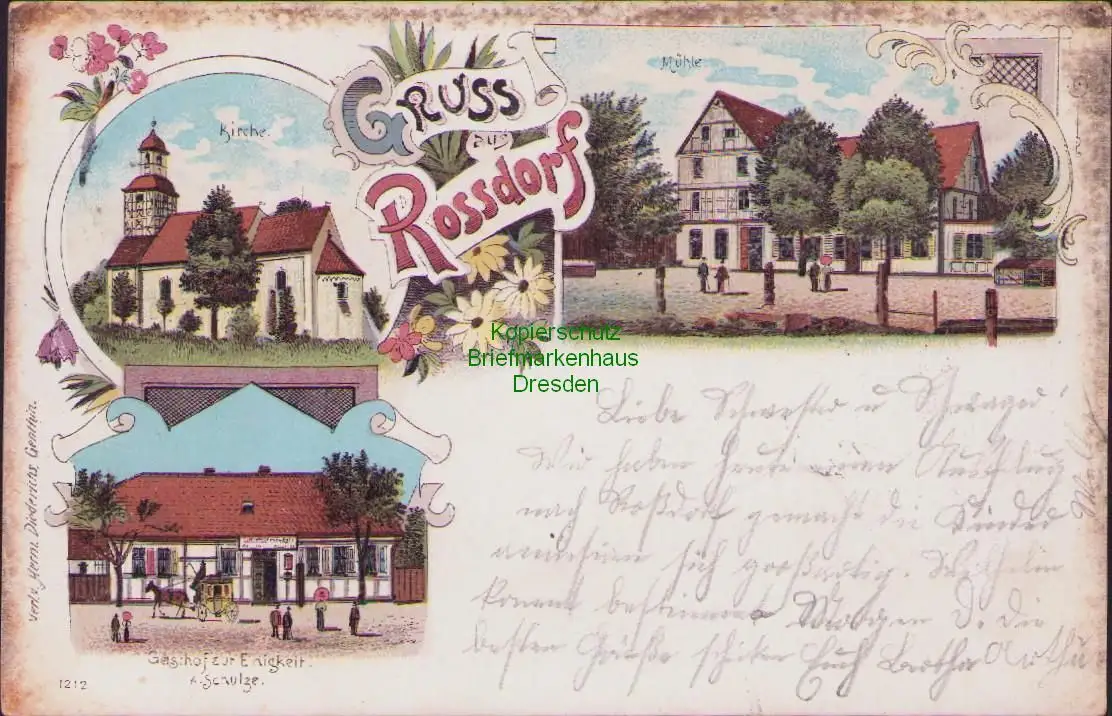 Kirche.
GRUSS
aus
Rossdorf
Mühle
Kopierschutz
Briefmarkenhaus
Dresden
Liebe Schwester u Schwager!
Wir haben heute einen Ausflug
nach Roßdorf gemacht die Kinder
amüsiren sich großartig. Wilhelm
kommt bestimmt Morgen D. die
besten Grüße schicken Euch Bertha Arthur
Verl. v. Herm. Diederichs, Genthin.
Gasthof zur Einigkeit.
A. Schulze.
1212